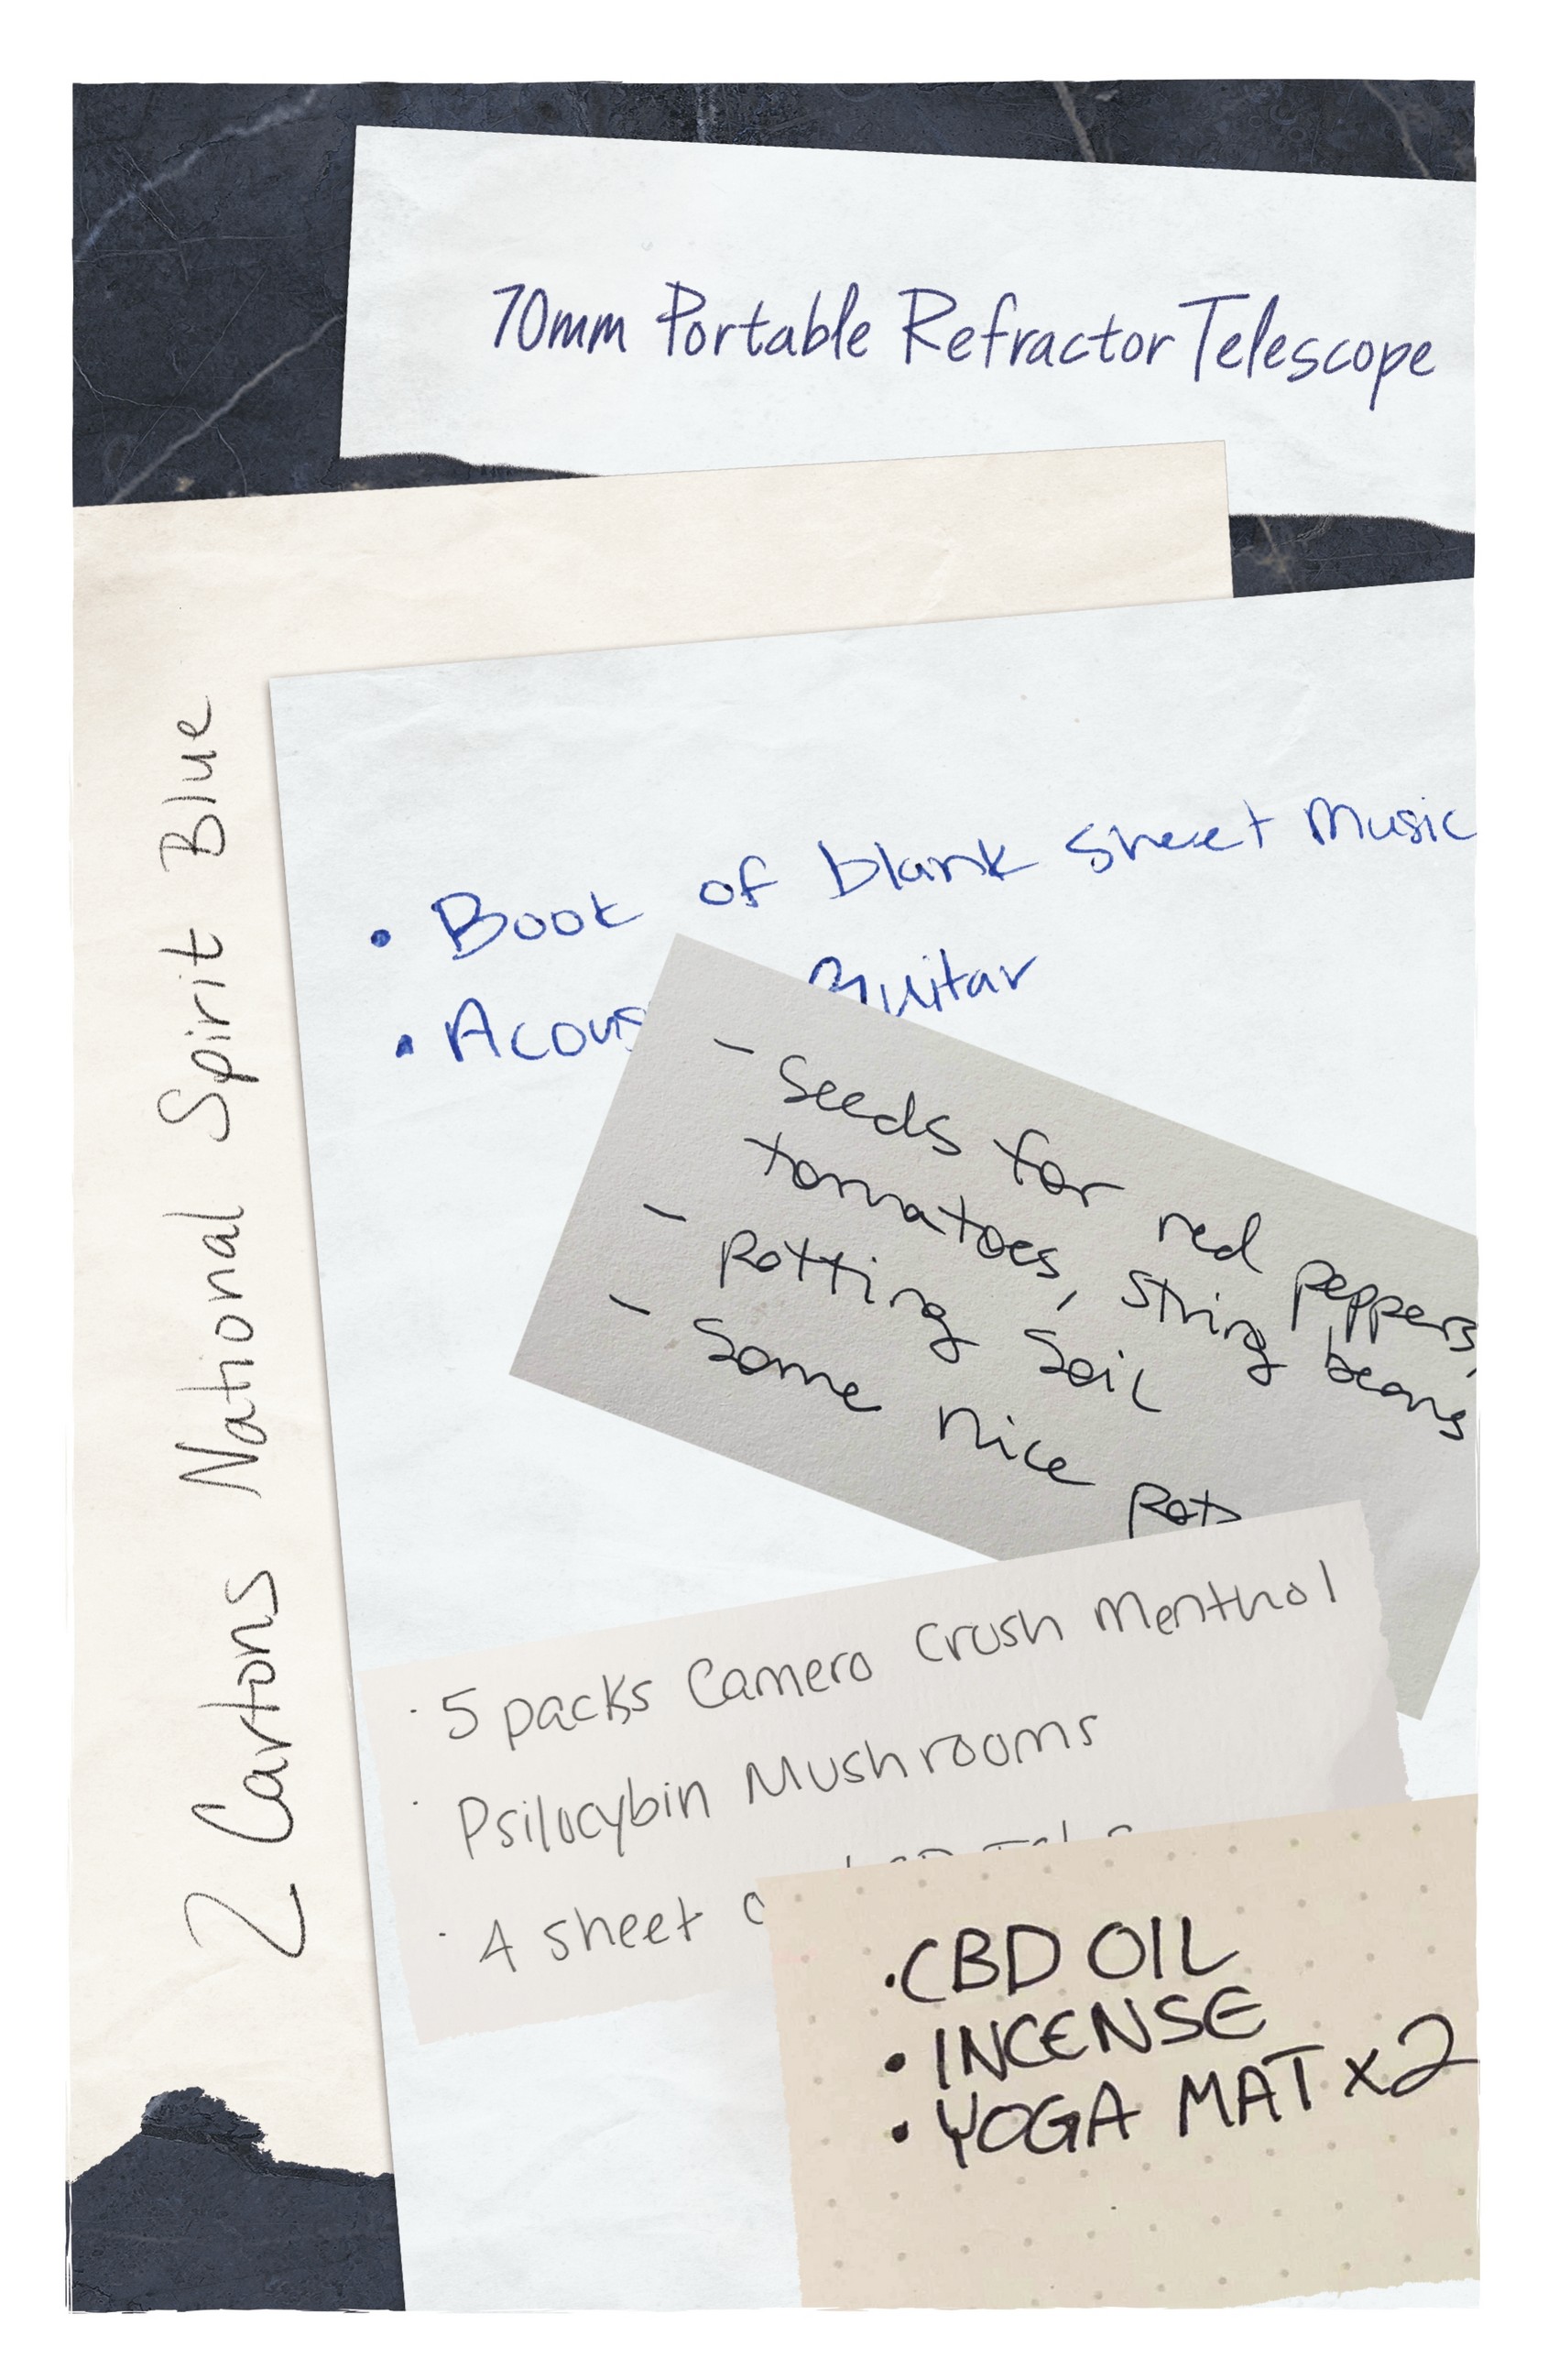 70mm Portable Refractor Telescope
2 Cartons National Spirit Blue
• Book of blank sheet Music
• Acous Guitar
- Seeds for red peppers,
tomatoes, string beans
- Potting Soil
- Some nice pots
· 5 packs Camero Crush Menthol
· Psilocybin Mushrooms
· 4 sheet
• CBD OIL
• INCENSE
• YOGA MAT x2